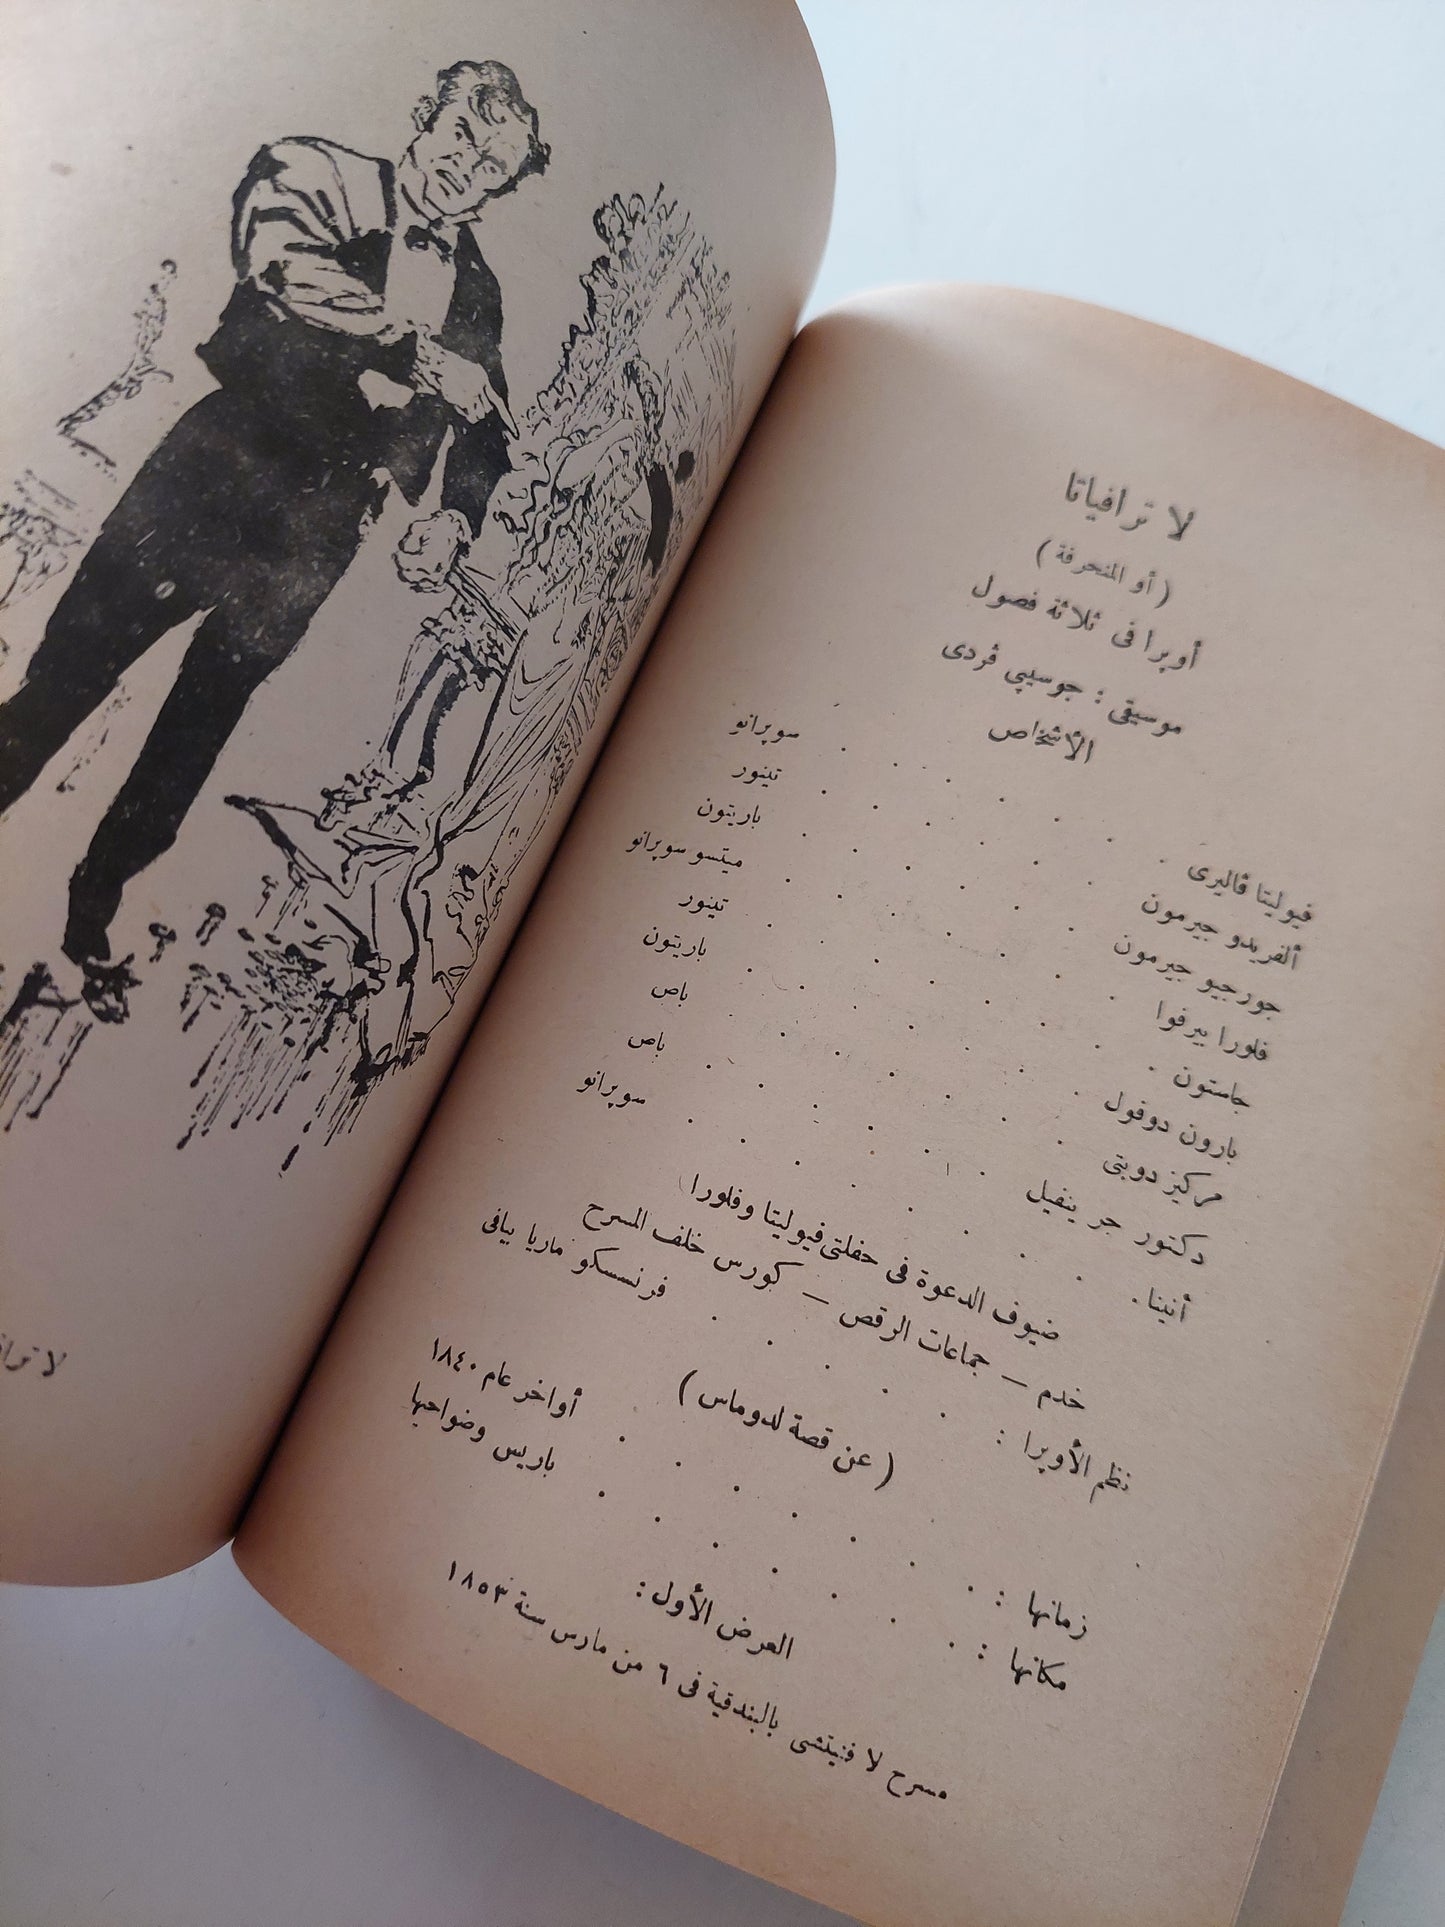 لا ترافياتا
( أو المنحرفة )
أوپرا فى ثلاثة فصول
موسيقى : جوسيپي ڤردى
الأشخاص
فيوليتا ڤاليرى . . . . . . . سوپرانو
ألفريدو جيرمون . . . . . . تينور
جورجيو جيرمون . . . . . . باريتون
فلورا بيرفوا . . . . . . ميتسو سوپرانو
جاستون . . . . . . . تينور
بارون دوفول . . . . . . باريتون
مركيز دوبتى . . . . . . باص
دكتور جرينفيل . . . . . . باص
أنينا . . . . . . . . سوپرانو
ضيوف الدعوة فى حفلتى فيوليتا وفلورا
خدم – جماعات الرقص – كورس خلف المسرح
نظم الأوپرا : . . . . . فرنسسكو ماريا بيافى
( عن قصة لدوماس )
زمانها : . . . . . . . أواخر عام ١٨٤٠
مكانها : . . . . . . . باريس وضواحيها
العرض الأول :
مسرح لا فنيتشى بالبندقية فى ٦ من مارس سنة ١٨٥٣